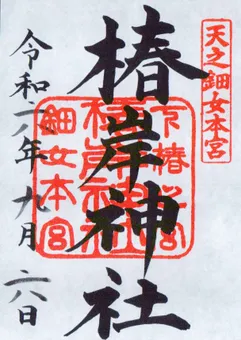 天之鈿女本宮
椿岸神社
令和六年九月六日
鈿女本宮